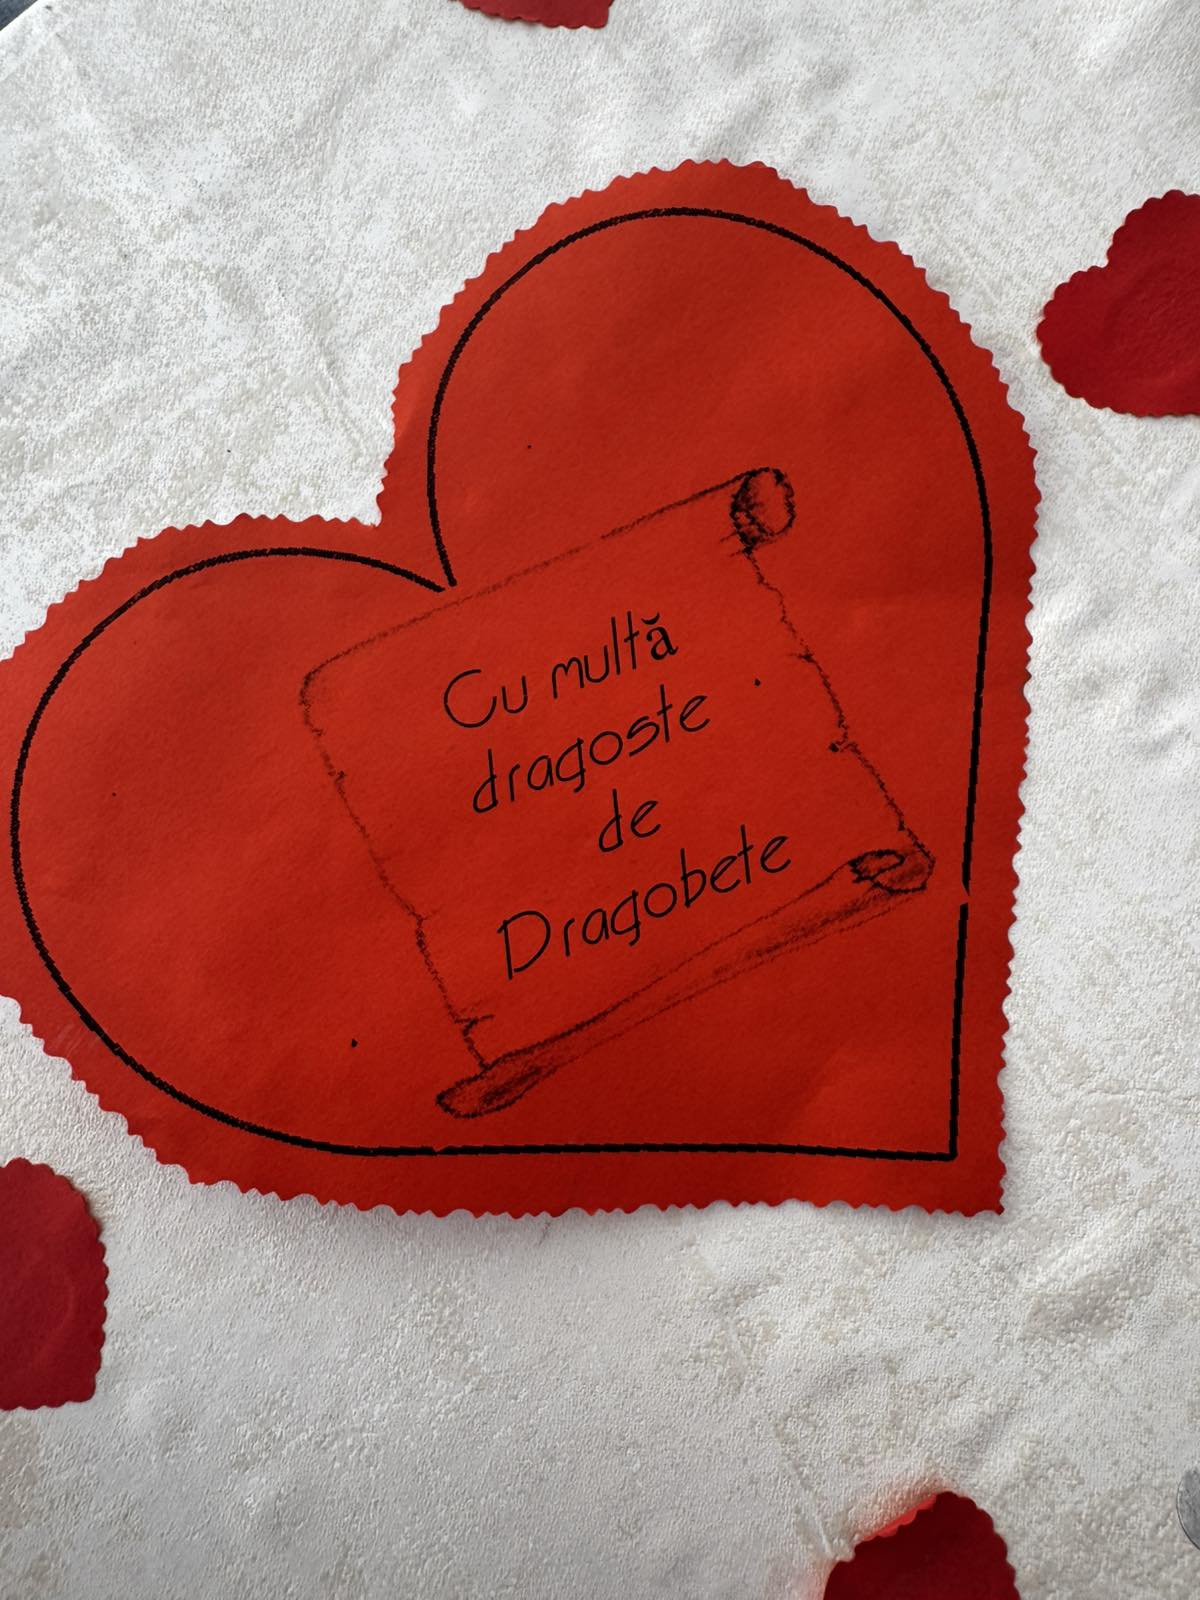 Cu multă
dragoste
de
Dragobete